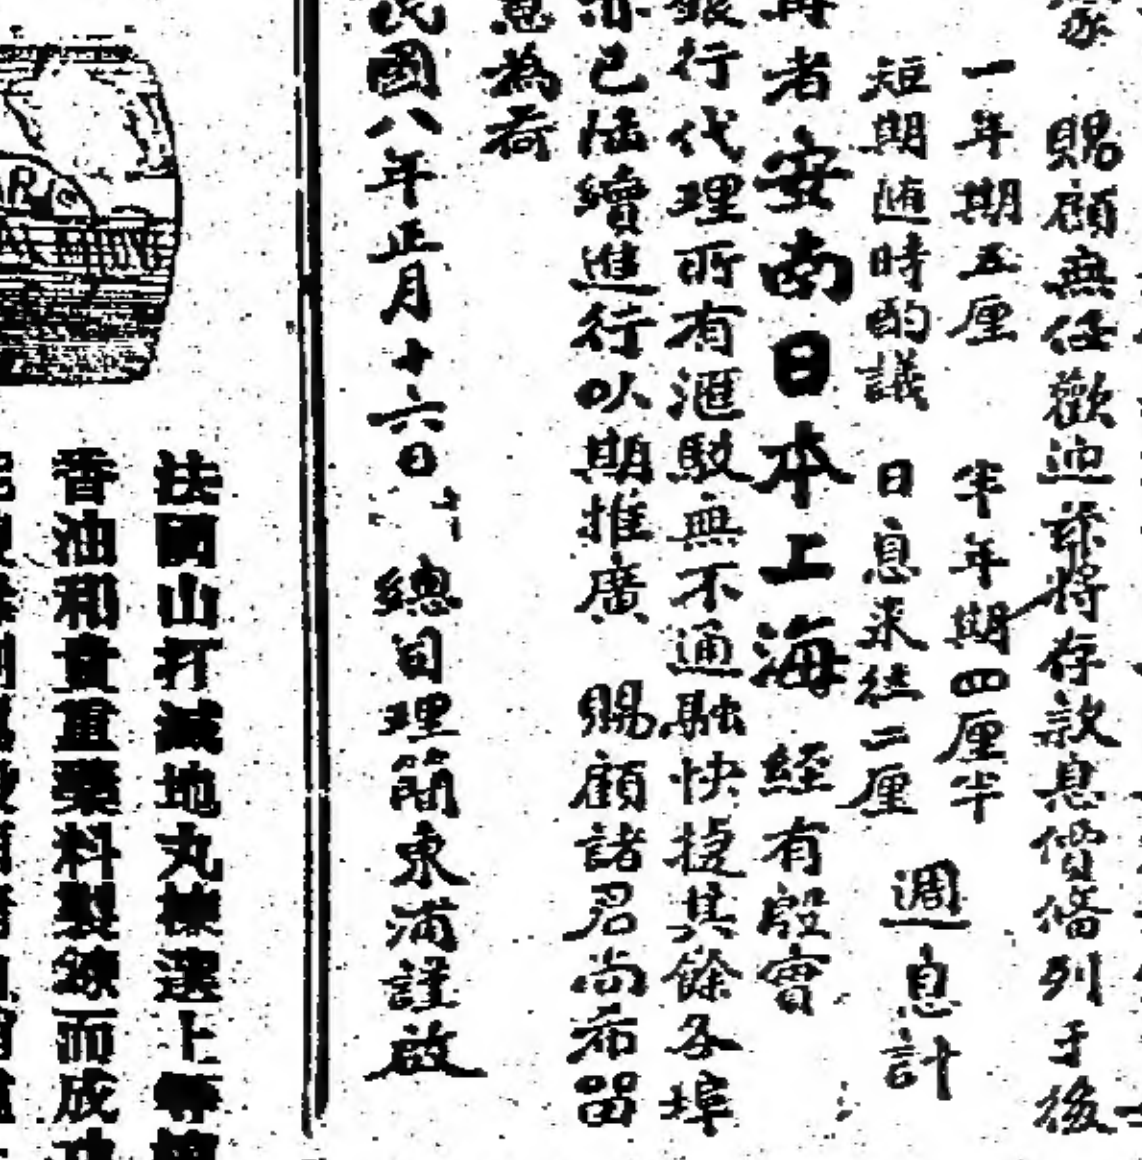 家 賜顧無任歡迎茲將存款息價俻列于後
一年期五厘 半年期四厘半
短期随時酌議 日息來往二厘 週息計
再者安南日本上海經有殷實
銀行代理所有滙駁無不通融快捷其餘各埠
亦已陆續進行以期推廣 賜顧諸君尚希留
意為荷
民國八年正月十六日 總司理簡東浦謹啟
法國山打滅地丸揀選上等
香油和貴重藥料製鍊而成功